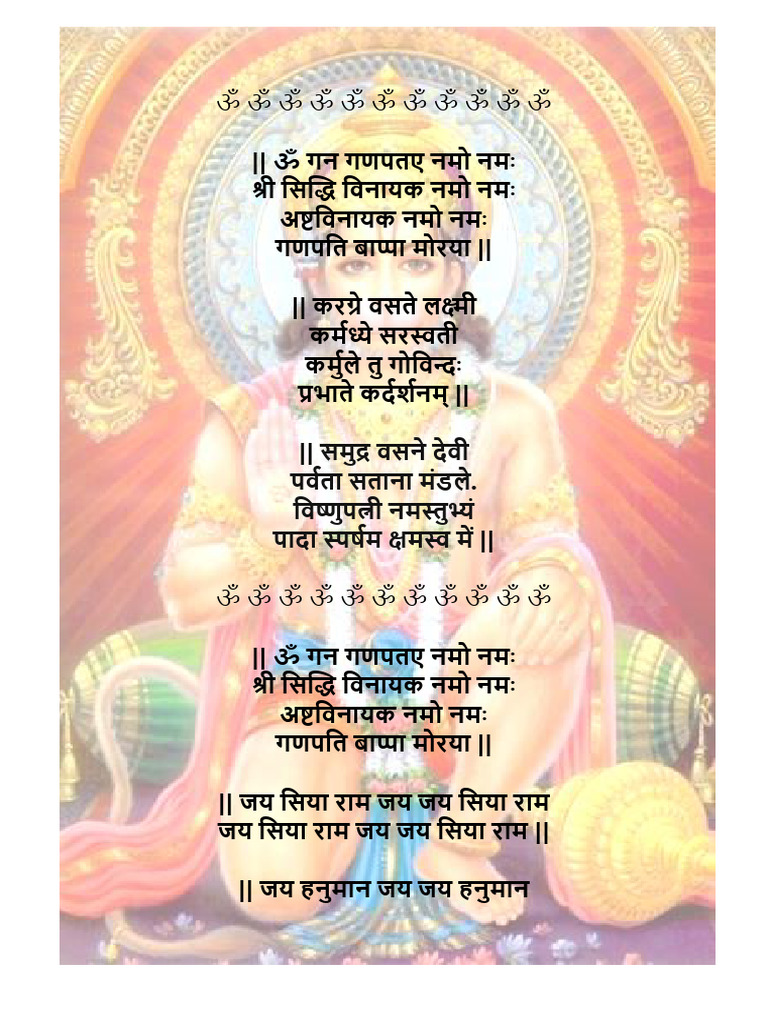 ॐ ॐ ॐ ॐ ॐ ॐ ॐ ॐ ॐ ॐ ॐ
|| ॐ गन गणपतए नमो नमः
श्री सिद्धि विनायक नमो नमः
अष्टविनायक नमो नमः
गणपति बाप्पा मोरया ||
|| करग्रे वसते लक्ष्मी
कर्मध्ये सरस्वती
कर्मुले तु गोविन्दः
प्रभाते कर्दर्शनम् ||
|| समुद्र वसने देवी
पर्वता सताना मंडले.
विष्णुपत्नी नमस्तुभ्यं
पादा स्पर्षम क्षमस्व में ||
ॐ ॐ ॐ ॐ ॐ ॐ ॐ ॐ ॐ ॐ ॐ
|| ॐ गन गणपतए नमो नमः
श्री सिद्धि विनायक नमो नमः
अष्टविनायक नमो नमः
गणपति बाप्पा मोरया ||
|| जय सिया राम जय जय सिया राम
जय सिया राम जय जय सिया राम ||
|| जय हनुमान जय जय हनुमान